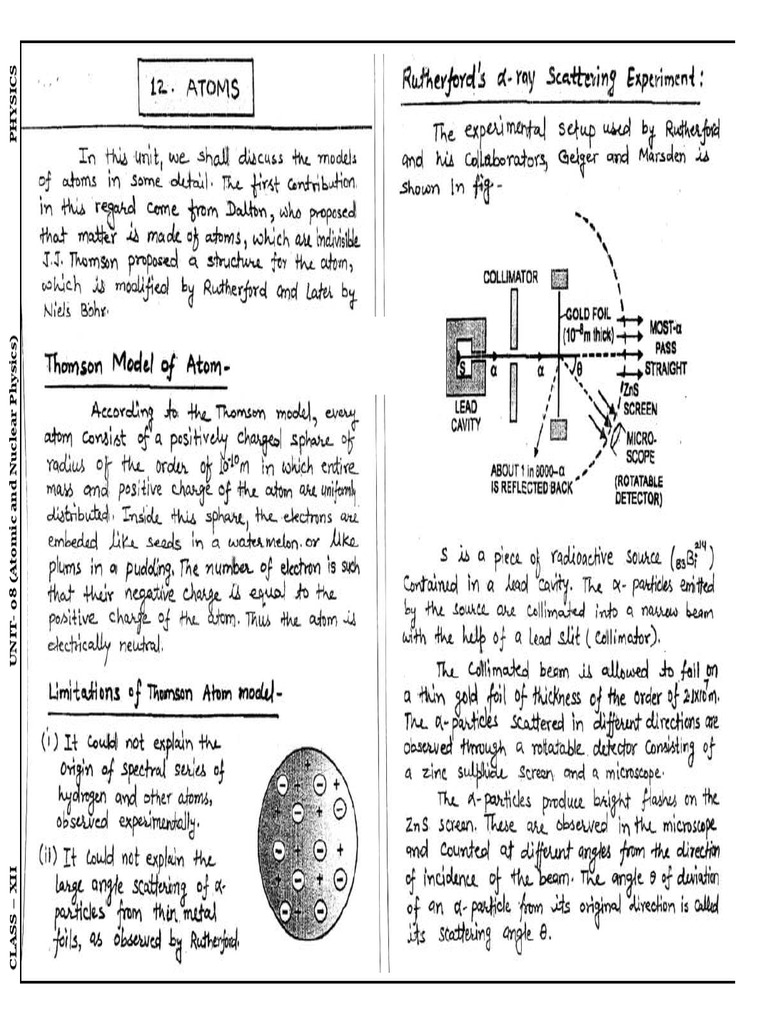 PHYSICS
UNIT- 08 (Atomic and Nuclear Physics)
CLASS – XII
12. ATOMS
In this unit, we shall discuss the models
of atoms in some detail. The first contribution
in this regard come from Dalton, who proposed
that matter is made of atoms, which are indivisible
J.J. Thomson proposed a structure for the atom,
which is modified by Rutherford and Later by
Niels Bohr.
Thomson Model of Atom-
According to the Thomson model, every
atom consist of a positively charged sphare of
radius of the order of 10⁻¹⁰m in which entire
mass and positive charge of the atom are uniformly
distributed. Inside this sphare, the electrons are
embeded like seeds in a watermelon or like
plums in a pudding. The number of electron is such
that their negative charge is equal to the
positive charge of the atom. Thus the atom is
electrically neutral.
Limitations of Thomson Atom model-
(i) It could not explain the
origin of spectral series of
hydrogen and other atoms,
observed experimentally.
(ii) It could not explain the
large angle scattering of α-
particles from thin metal
foils, as observed by Rutherford.
Rutherford's α-ray Scattering Experiment:
The experimental setup used by Rutherford
and his collaborators, Geiger and Marsden is
shown In fig-
COLLIMATOR
GOLD FOIL
(10⁻⁸m thick)
MOST-α
PASS
STRAIGHT
S
α
α
θ
LEAD
CAVITY
ZnS
SCREEN
MICRO-
SCOPE
(ROTATABLE
DETECTOR)
ABOUT 1 in 8000-α
IS REFLECTED BACK
S is a piece of radioactive source (₈₃Bi²¹⁴)
Contained in a lead cavity. The α- particles emitted
by the source are collimated into a narrow beam
with the help of a lead slit (collimator).
The Collimated beam is allowed to fall on
a thin gold foil of thickness of the order of
The α-particles scattered in different directions are
observed through a rotatable detector consisting of
a zinc sulphide screen and a microscope.
The α-particles produce bright flashes on the
ZnS screen. These are observed in the microscope
and counted at different angles from the direction
of incidence of the beam. The angle θ of deviation
of an α-particle from its original direction is called
its scattering angle θ.